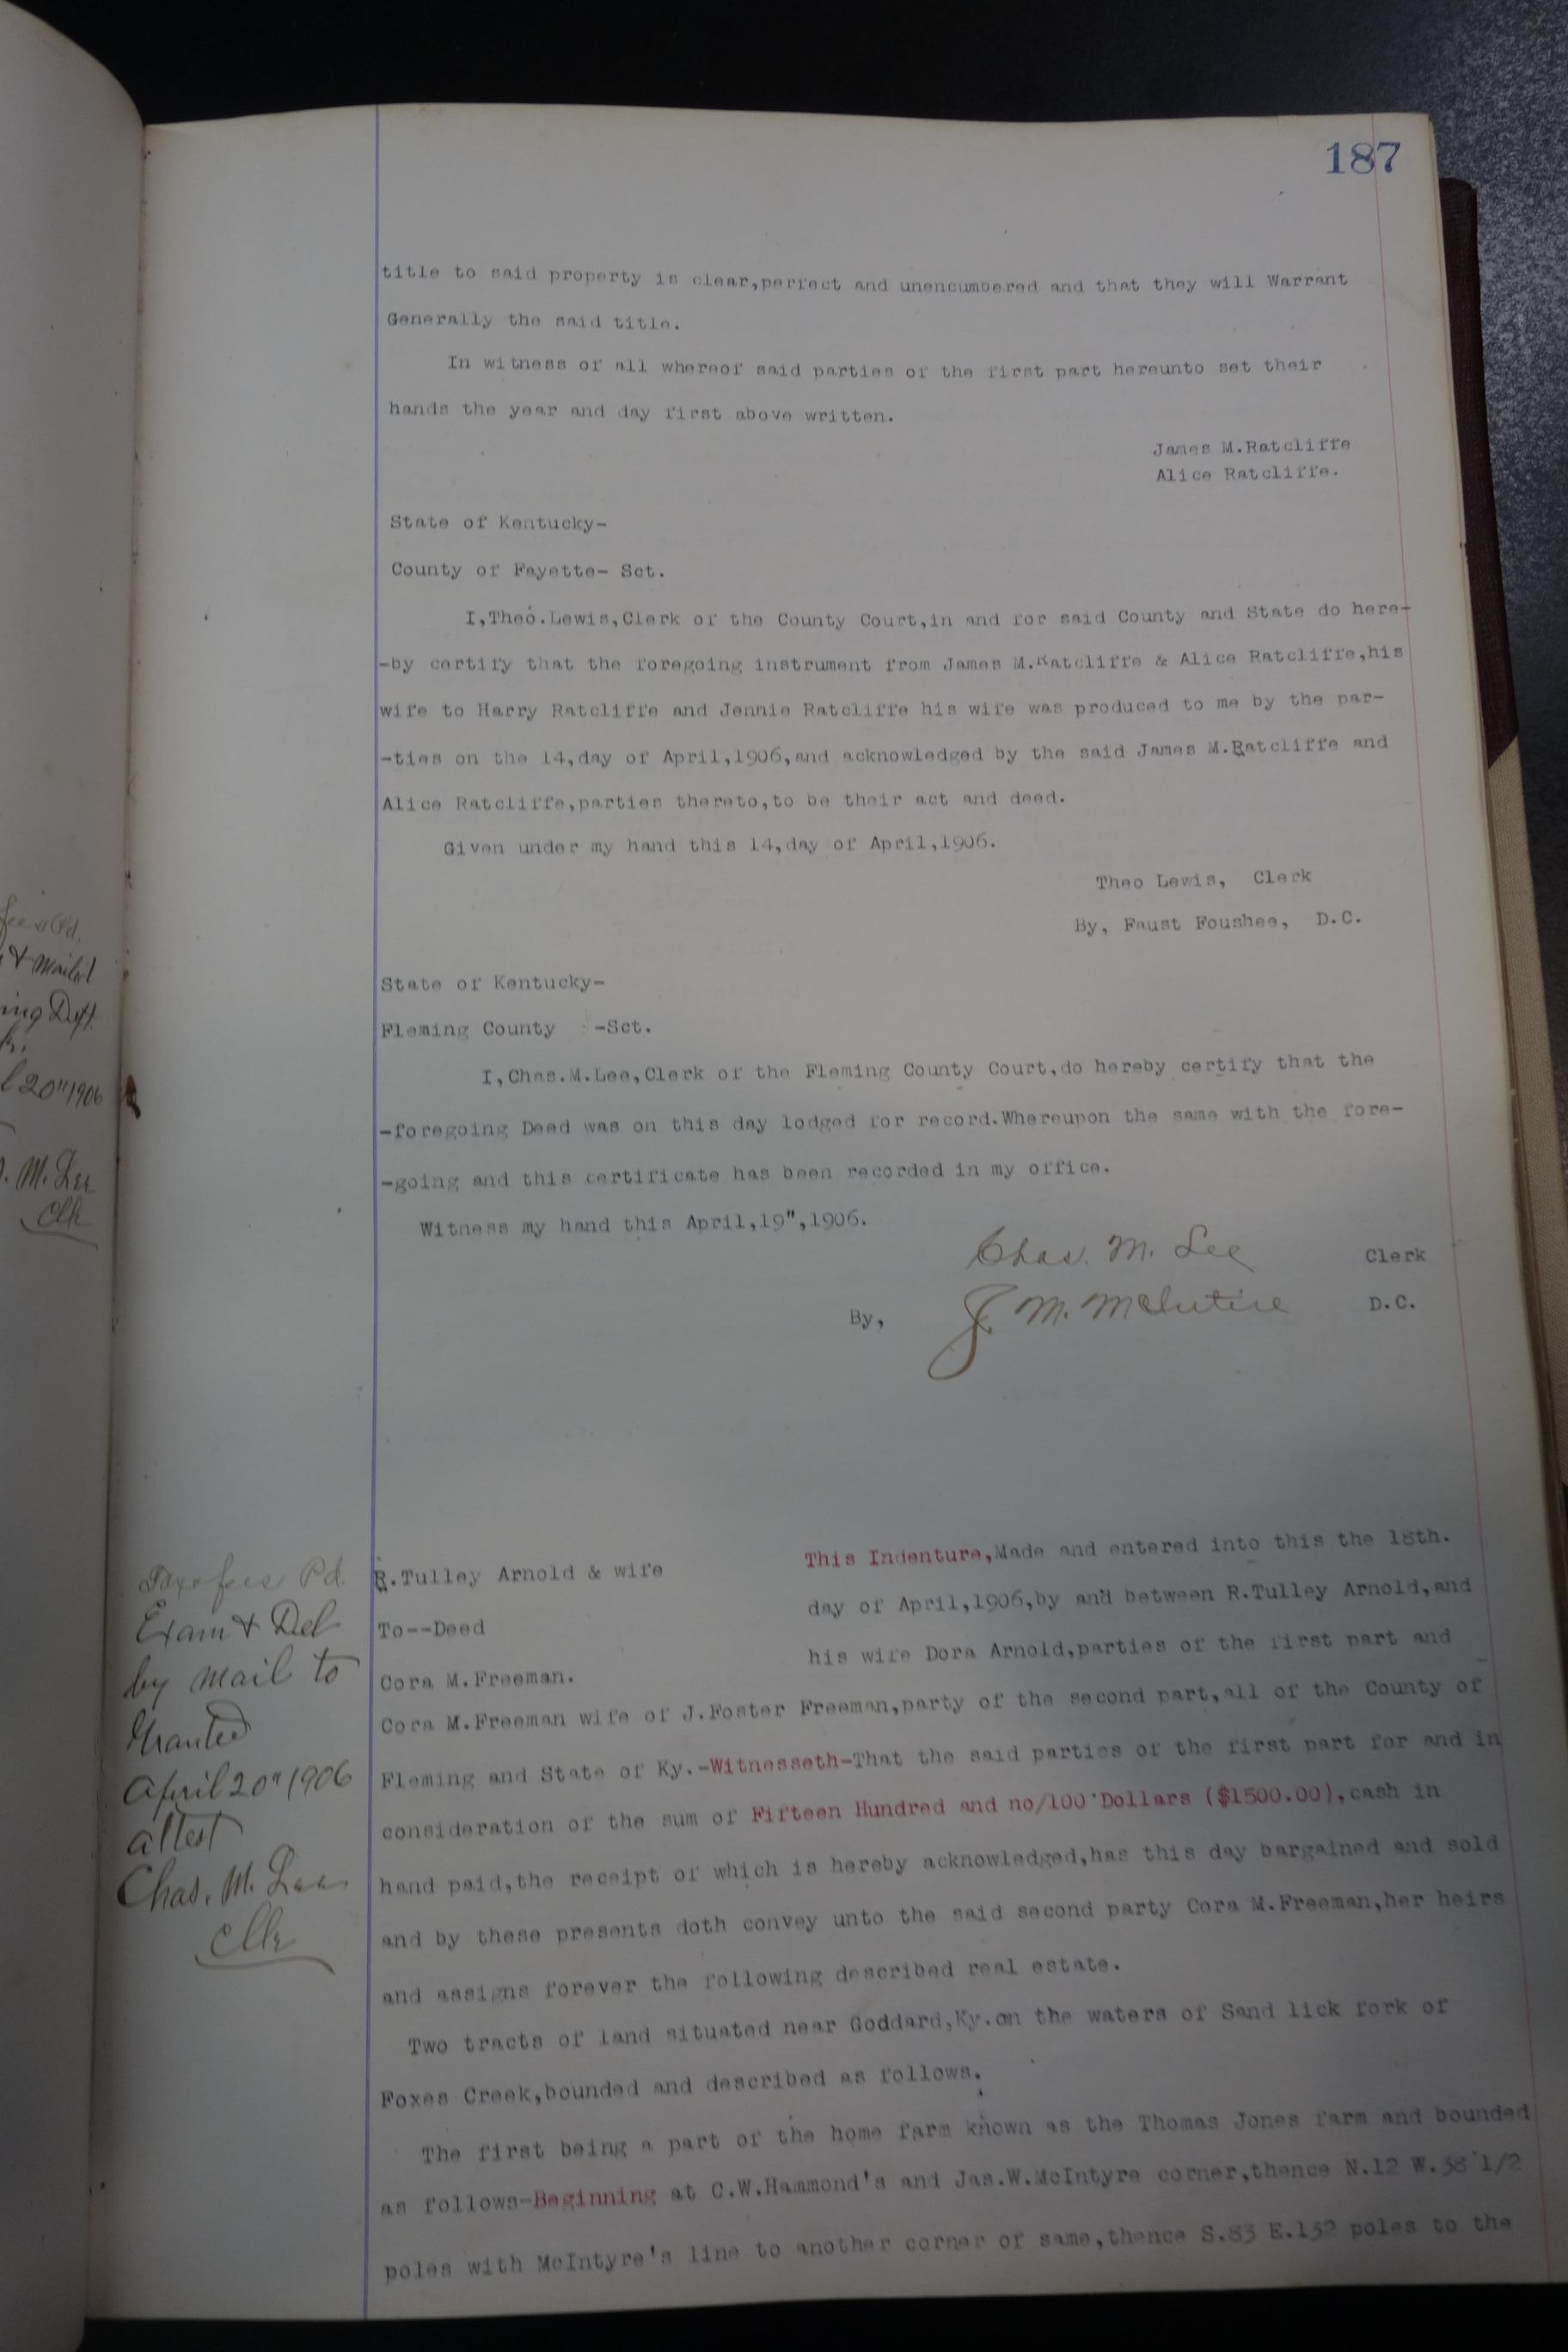 187
title to said property is clear,perfect and unencumbered and that they will Warrant
Generally the said title.
In witness of all whereof said parties of the first part hereunto set their
hands the year and day first above written.
James M.Ratcliffe
Alice Ratcliffe.
State of Kentucky-
County of Fayette- Sct.
I,Theo.Lewis,Clerk of the County Court,in and for said County and State do here-
-by certify that the foregoing instrument from James M.Ratcliffe & Alice Ratcliffe,his
wife to Harry Ratcliffe and Jennie Ratcliffe his wife was produced to me by the par-
-ties on the 14,day of April,1906,and acknowledged by the said James M.Ratcliffe and
Alice Ratcliffe,parties thereto,to be their act and deed.
Given under my hand this 14,day of April,1906.
Theo Lewis, Clerk
By, Faust Foushee, D.C.
State of Kentucky-
Fleming County -Sct.
I,Chas.M.Lee,Clerk of the Fleming County Court,do hereby certify that the
-foregoing Deed was on this day lodged for record.Whereupon the same with the fore-
-going and this certificate has been recorded in my office.
Witness my hand this April,19",1906.
Chas. M. Lee Clerk
By, J. M. McIntire D.C.
& Mailed
20" 1906
M. Lee
Clk
Tax & fees Pd.
Exam & Del
by mail to
Grantee
April 20" 1906
attest
Chas. M. Lee
Clk
R.Tulley Arnold & wife
To--Deed
Cora M.Freeman.
This Indenture,Made and entered into this the 18th.
day of April,1906,by and between R.Tulley Arnold,and
his wife Dora Arnold,parties of the first part and
Cora M.Freeman wife of J.Foster Freeman,party of the second part,all of the County of
Fleming and State of Ky.-Witnesseth-That the said parties of the first part for and in
consideration of the sum of Fifteen Hundred and no/100 Dollars ($1500.00),cash in
hand paid,the receipt of which is hereby acknowledged,has this day bargained and sold
and by these presents doth convey unto the said second party Cora M.Freeman,her heirs
and assigns forever the following described real estate.
Two tracts of land situated near Goddard,Ky.on the waters of Sand lick fork of
Foxes Creek,bounded and described as follows.
The first being a part of the home farm known as the Thomas Jones farm and bounded
as follows-Beginning at C.W.Hammond's and Jas.W.McIntyre corner,thence N.12 W.38 1/2
poles with McIntyre's line to another corner of same,thence S.83 E.132 poles to the